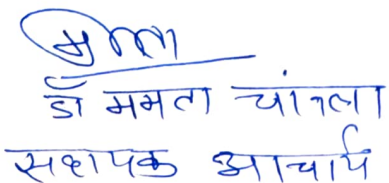 डॉ ममता चांगला
सहायक आचार्य